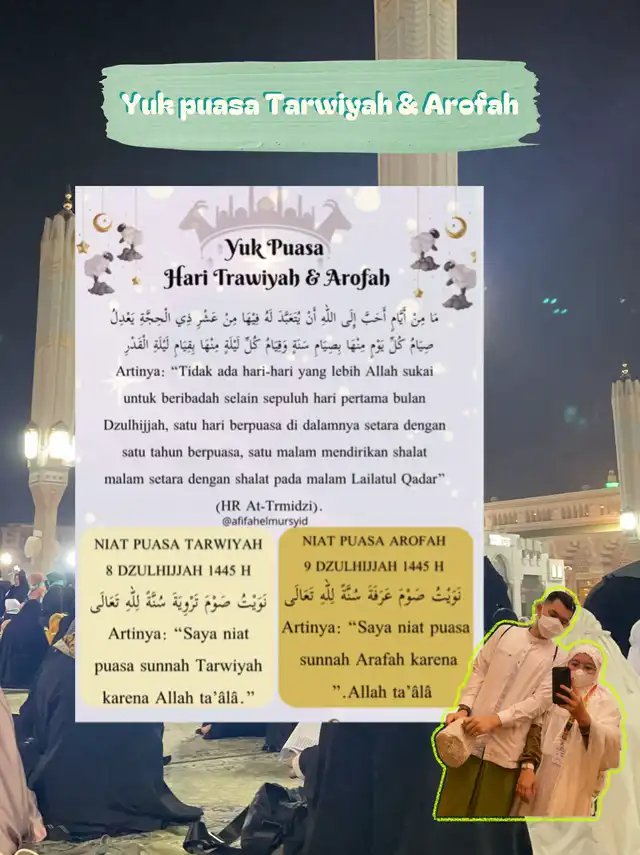 Yuk puasa Tarwiyah & Arofah
Yuk Puasa
Hari Trawiyah & Arofah
مَا مِنْ أَيَّامٍ أَحَبَّ إِلَى اللَّهِ أَنْ يُتَعَبَّدَ لَهُ فِيْهَا مِنْ عَشْرِ ذِي الْحِجَّةِ يَعْدِلُ
صِيَامُ كُلِّ يَوْمٍ مِنْهَا بِصِيَامِ سَنَةٍ وَقِيَامُ كُلِّ لَيْلَةٍ مِنْهَا بِقِيَامِ لَيْلَةِ الْقَدْرِ
Artinya: “Tidak ada hari-hari yang lebih Allah sukai
untuk beribadah selain sepuluh hari pertama bulan
Dzulhijjah, satu hari berpuasa di dalamnya setara dengan
satu tahun berpuasa, satu malam mendirikan shalat
malam setara dengan shalat pada malam Lailatul Qadar”
(HR At-Trmidzi).
@afifahelmursyid
NIAT PUASA TARWIYAH
8 DZULHIJJAH 1445 H
نَوَيْتُ صَوْمَ تَرْوِيَةَ سُنَّةً لِلّٰهِ تَعَالَى
Artinya: “Saya niat
puasa sunnah Tarwiyah
karena Allah ta’âlâ.”
NIAT PUASA AROFAH
9 DZULHIJJAH 1445 H
نَوَيْتُ صَوْمَ عَرَفَةَ سُنَّةً لِلّٰهِ تَعَالَى
Artinya: “Saya niat puasa
sunnah Arafah karena
”.Allah ta’âlâ